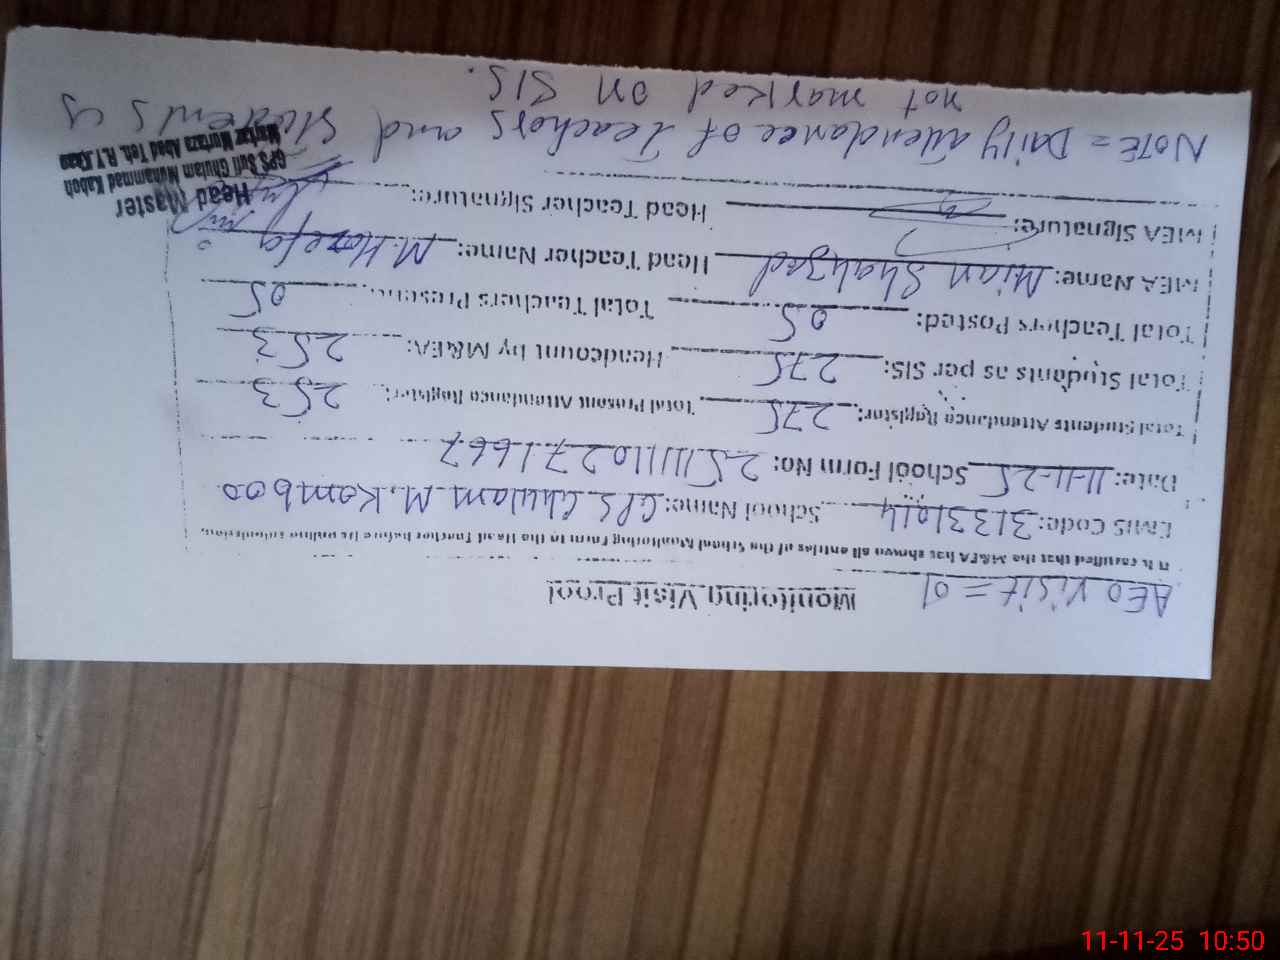 Monitoring Visit Proof
AEO Visit = 01
It is certified that the M&EA has shown all entries of the School Monitoring Form to the Head Teacher before its online submission.
EMIS Code: 31331014 School Name: GPS Ghulam M. Kamboo
Date: 11-11-25 School Form No: 25111110271667
Total Students Attendance Register: 275 Total Present Attendance Register: 253
Total Students as per SIS: 275 Headcount by M&EA: 253
Total Teachers Posted: 05 Total Teachers Present: 05
MEA Name: Mian Shahzad Head Teacher Name: M. Hozefa
MEA Signature: Head Teacher Signature:
Head Master
GPS Sufi Ghulam Muhammad Kaboh
Murtaza Abad Teh. R.Y.Khan
NOTE = Daily attendance of teachers and students is
not marked on SIS.
11-11-25 10:50